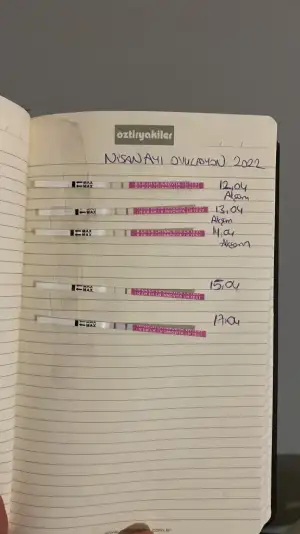 öztiryakiler
NİSAN AYI OVULASYON 2022
MAX
MAX
12.04
Akşam
MAX
13.04
Akşam
MAX
MAX
14.04
Akşam
MAX
MAX
15.04
MAX
MAX
17.04